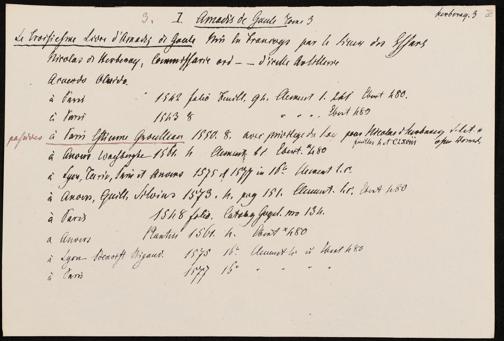 3. I Amadis de Gaule Tome 3 Herberay. 3
Le Troisiesme Livre d'Amadis de Gaule Mis en francoys par le sieur des Essars
Nicolas de Herberay, Commissaire ord - - d'icelle Artillerie
Acuerdo Olvido.
à Paris 1542 folio Clement l. Ebert 480.
à Paris 1543 8 " " Ebert 480
à Paris Estienne Groulleau 1550. 8. avec privilege du par Nicolas d'Herberay
à Anvers Waesberghe 1561. 4. Clement Ebert. 480
à Lyon, Turin, Paris et Anvers 1575 et 1577 in 16° Clement l.c.
à Anvers, Guill. Silvius 1573. 4. pag 151. Clement. l.c. Ebert 480
à Paris 1548 folio. Catalog no 134.
a Anvers Plantin 1561. 4. Ebert 480
à Lyon Benoist Rigaud. 1575 16° Clement l.c. Ebert 480
à Paris 1577 16 " " "